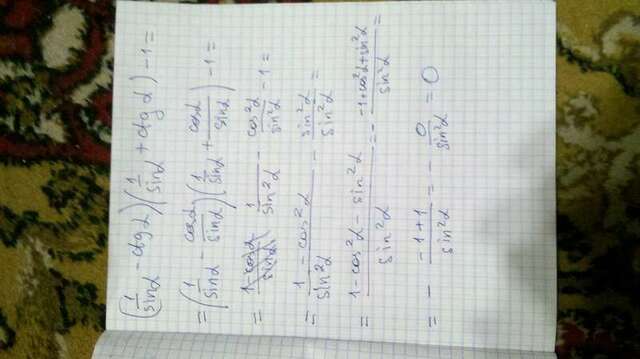 (1/sinα - ctgα)(1/sinα + ctgα) - 1 =
= (1/sinα - cosα/sinα)(1/sinα + cosα/sinα) - 1 =
= 1-cosα/sinα 1/sin²α - cos²α/sin²α - 1 =
= 1 - cos²α/sin²α - sin²α/sin²α =
= 1 - cos²α - sin²α/sin²α = - -1+cos²α+sin²α/sin²α =
= - -1+1/sin²α = - 0/sin²α = 0